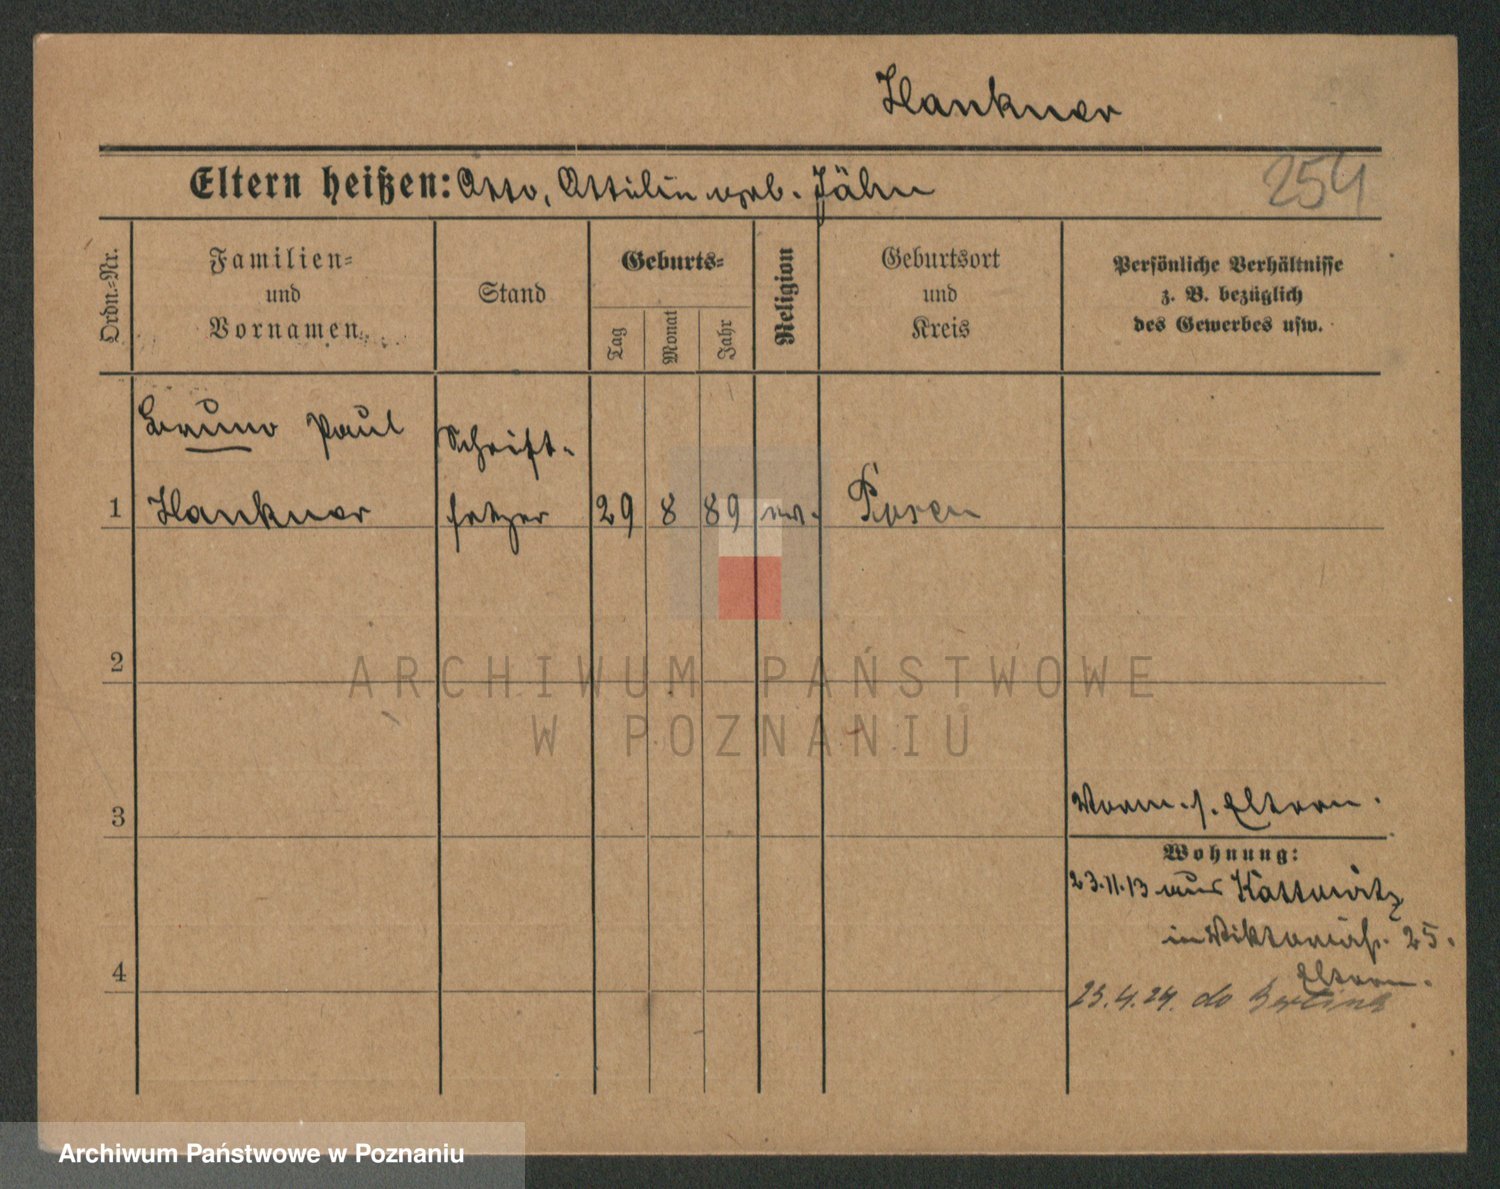 Hankner
Eltern heißen: Otto, Ottilie geb. Jähn
254
Ordn.-Nr.
Familien-
und
Vornamen
Stand
Geburts-
Tag
Monat
Jahr
Religion
Geburtsort
und
Kreis
Persönliche Verhältnisse
z. B. bezüglich
des Gewerbes usw.
Bruno Paul
Schrift-
1 Hankner setzer 29 8 89 ev. Posen
2
ARCHIWUM PAŃSTWOWE
W POZNANIU
3
Vorm. s. Eltern.
Wohnung:
23.11.13 aus Kattowitz
in Viktoriastr. 25.
4
Eltern.
23.4.24. do Berlina
Archiwum Państwowe w Poznaniu